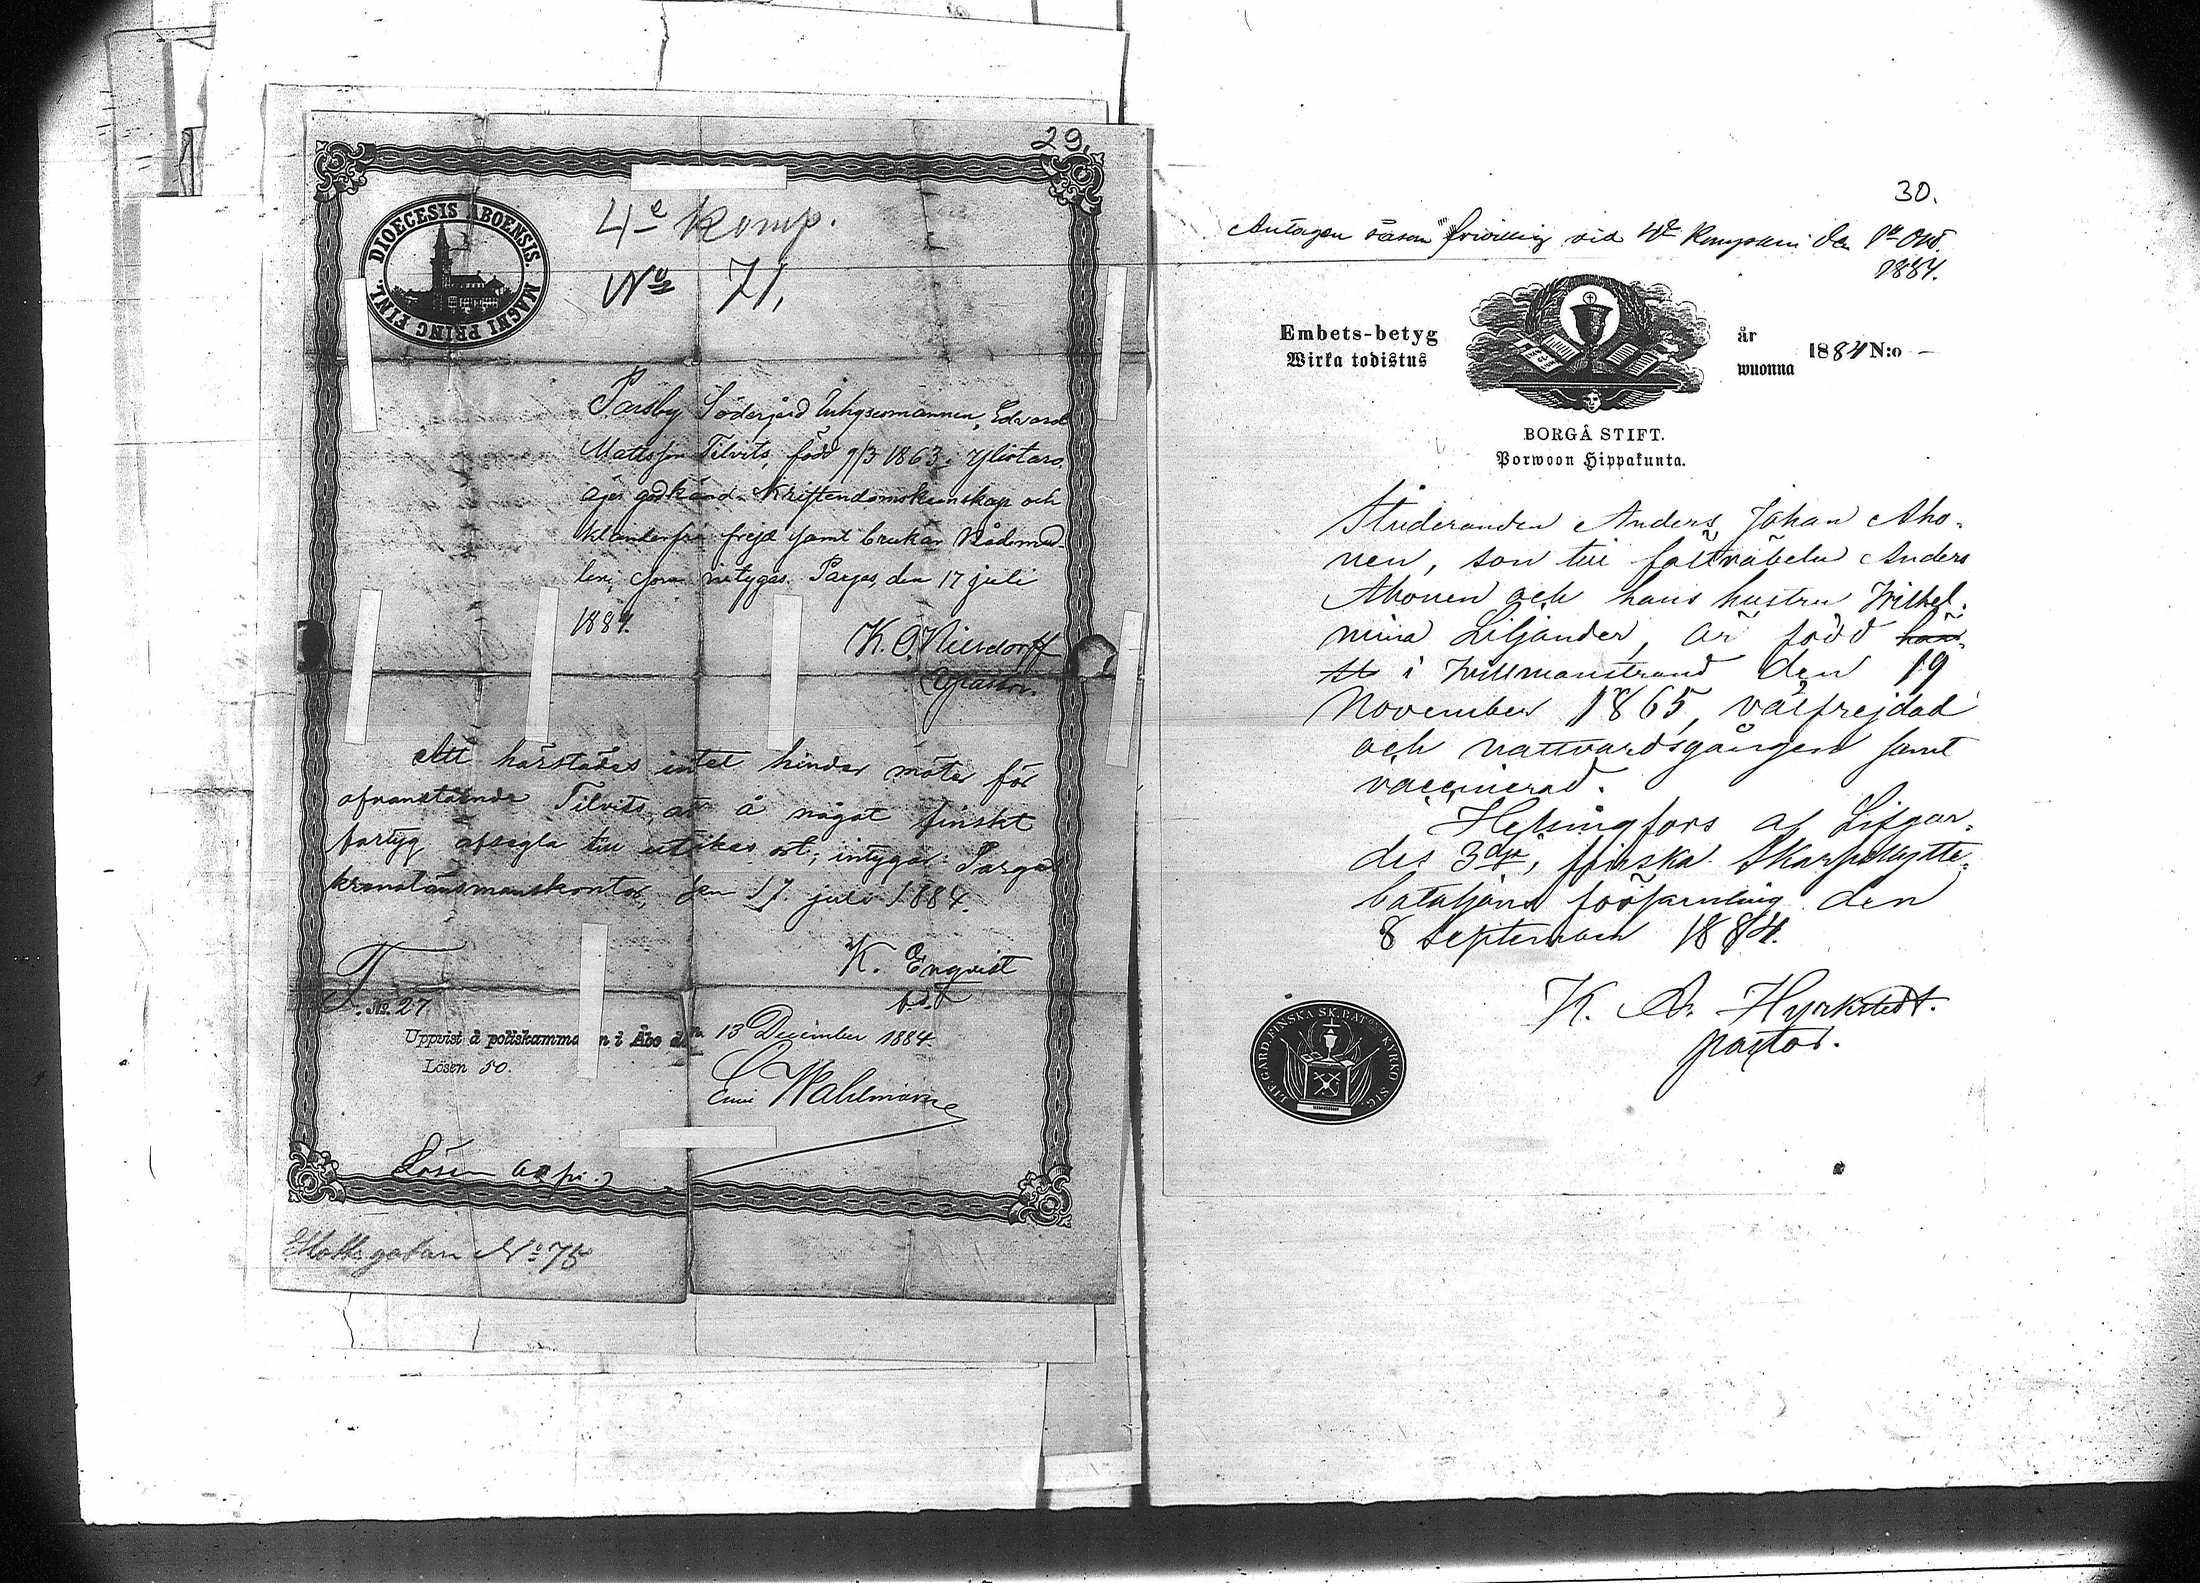 29.
DIOECESIS ABOENSIS. MAGNI PRINC FINL.
4e Komp.
No 71,
Parsby Söderjård Inhysesmannen, Edvard
Mattsson Tilvits, född 9/3 1863 i Ylistaro
äger godkänd Kristendomskunskap och
klanderfri frejd samt brukar Nådemed-
len; som intygas. Pargas, den 17 juli
1884.
K. O. Niersdorff
Att härstädes intet hinder möter för
ofvanstående Tilvits att å något finskt
fartyg afsegla till utrikes ort, intygar Pargas
kronolänsmanskontor, den 17 juli 1884.
K. Enqvist
T. No. 27
Uppvist å poliskammaren i Åbo den 13 December 1884.
Lösen 50.
Emil Wahlman
Lösen
No 75
30.
Antagen såsom frivillig vid 4de Kompaniet den 1a Okt.
1884.
Embets-betyg
Wirka todistus
år
wuonna
1884 N:o –
BORGÅ STIFT.
Porwoon Hippakunta.
Studeranden Anders Johan Aho-
nen, son till fältväbeln Anders
Ahonen och hans hustru Wilhel-
mina Liljander, är född
i Willmanstrand den 19
November 1865, välfrejdad
och nattvardsgången samt
vaccinerad.
Helsingfors af Lifgar-
des 3dje finska Skarpskytte-
bataljons församling den
8 September 1884.
K. A. Hyrkstedt.
pastor.
LIF GARD. FINSKA SK. BAT:ONS KYRKO SIG.